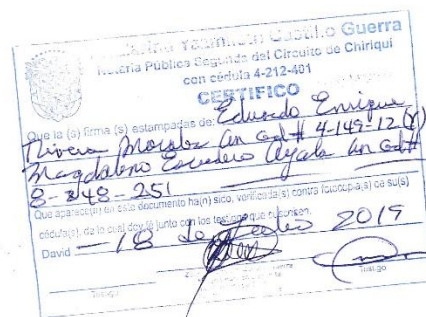 Guerra
Notaria Pública Segunda del Circuito de Chiriquí
con cédula 4-212-401
CERTIFICO
Que la (s) firma (s) estampadas de: Eduardo Enrique
Rivera Morales con ced# 4-149-12 (y)
Magdaleno Escudero Ayala con ced#
8-248-251
Que aparece(n) en este documento ha(n) sido, verificada(s) contra fotocopia(s) de su(s)
cédula(s), de lo cual doy fe junto con los testigos que suscriben.
David 18 de 2019
Testigo Testigo